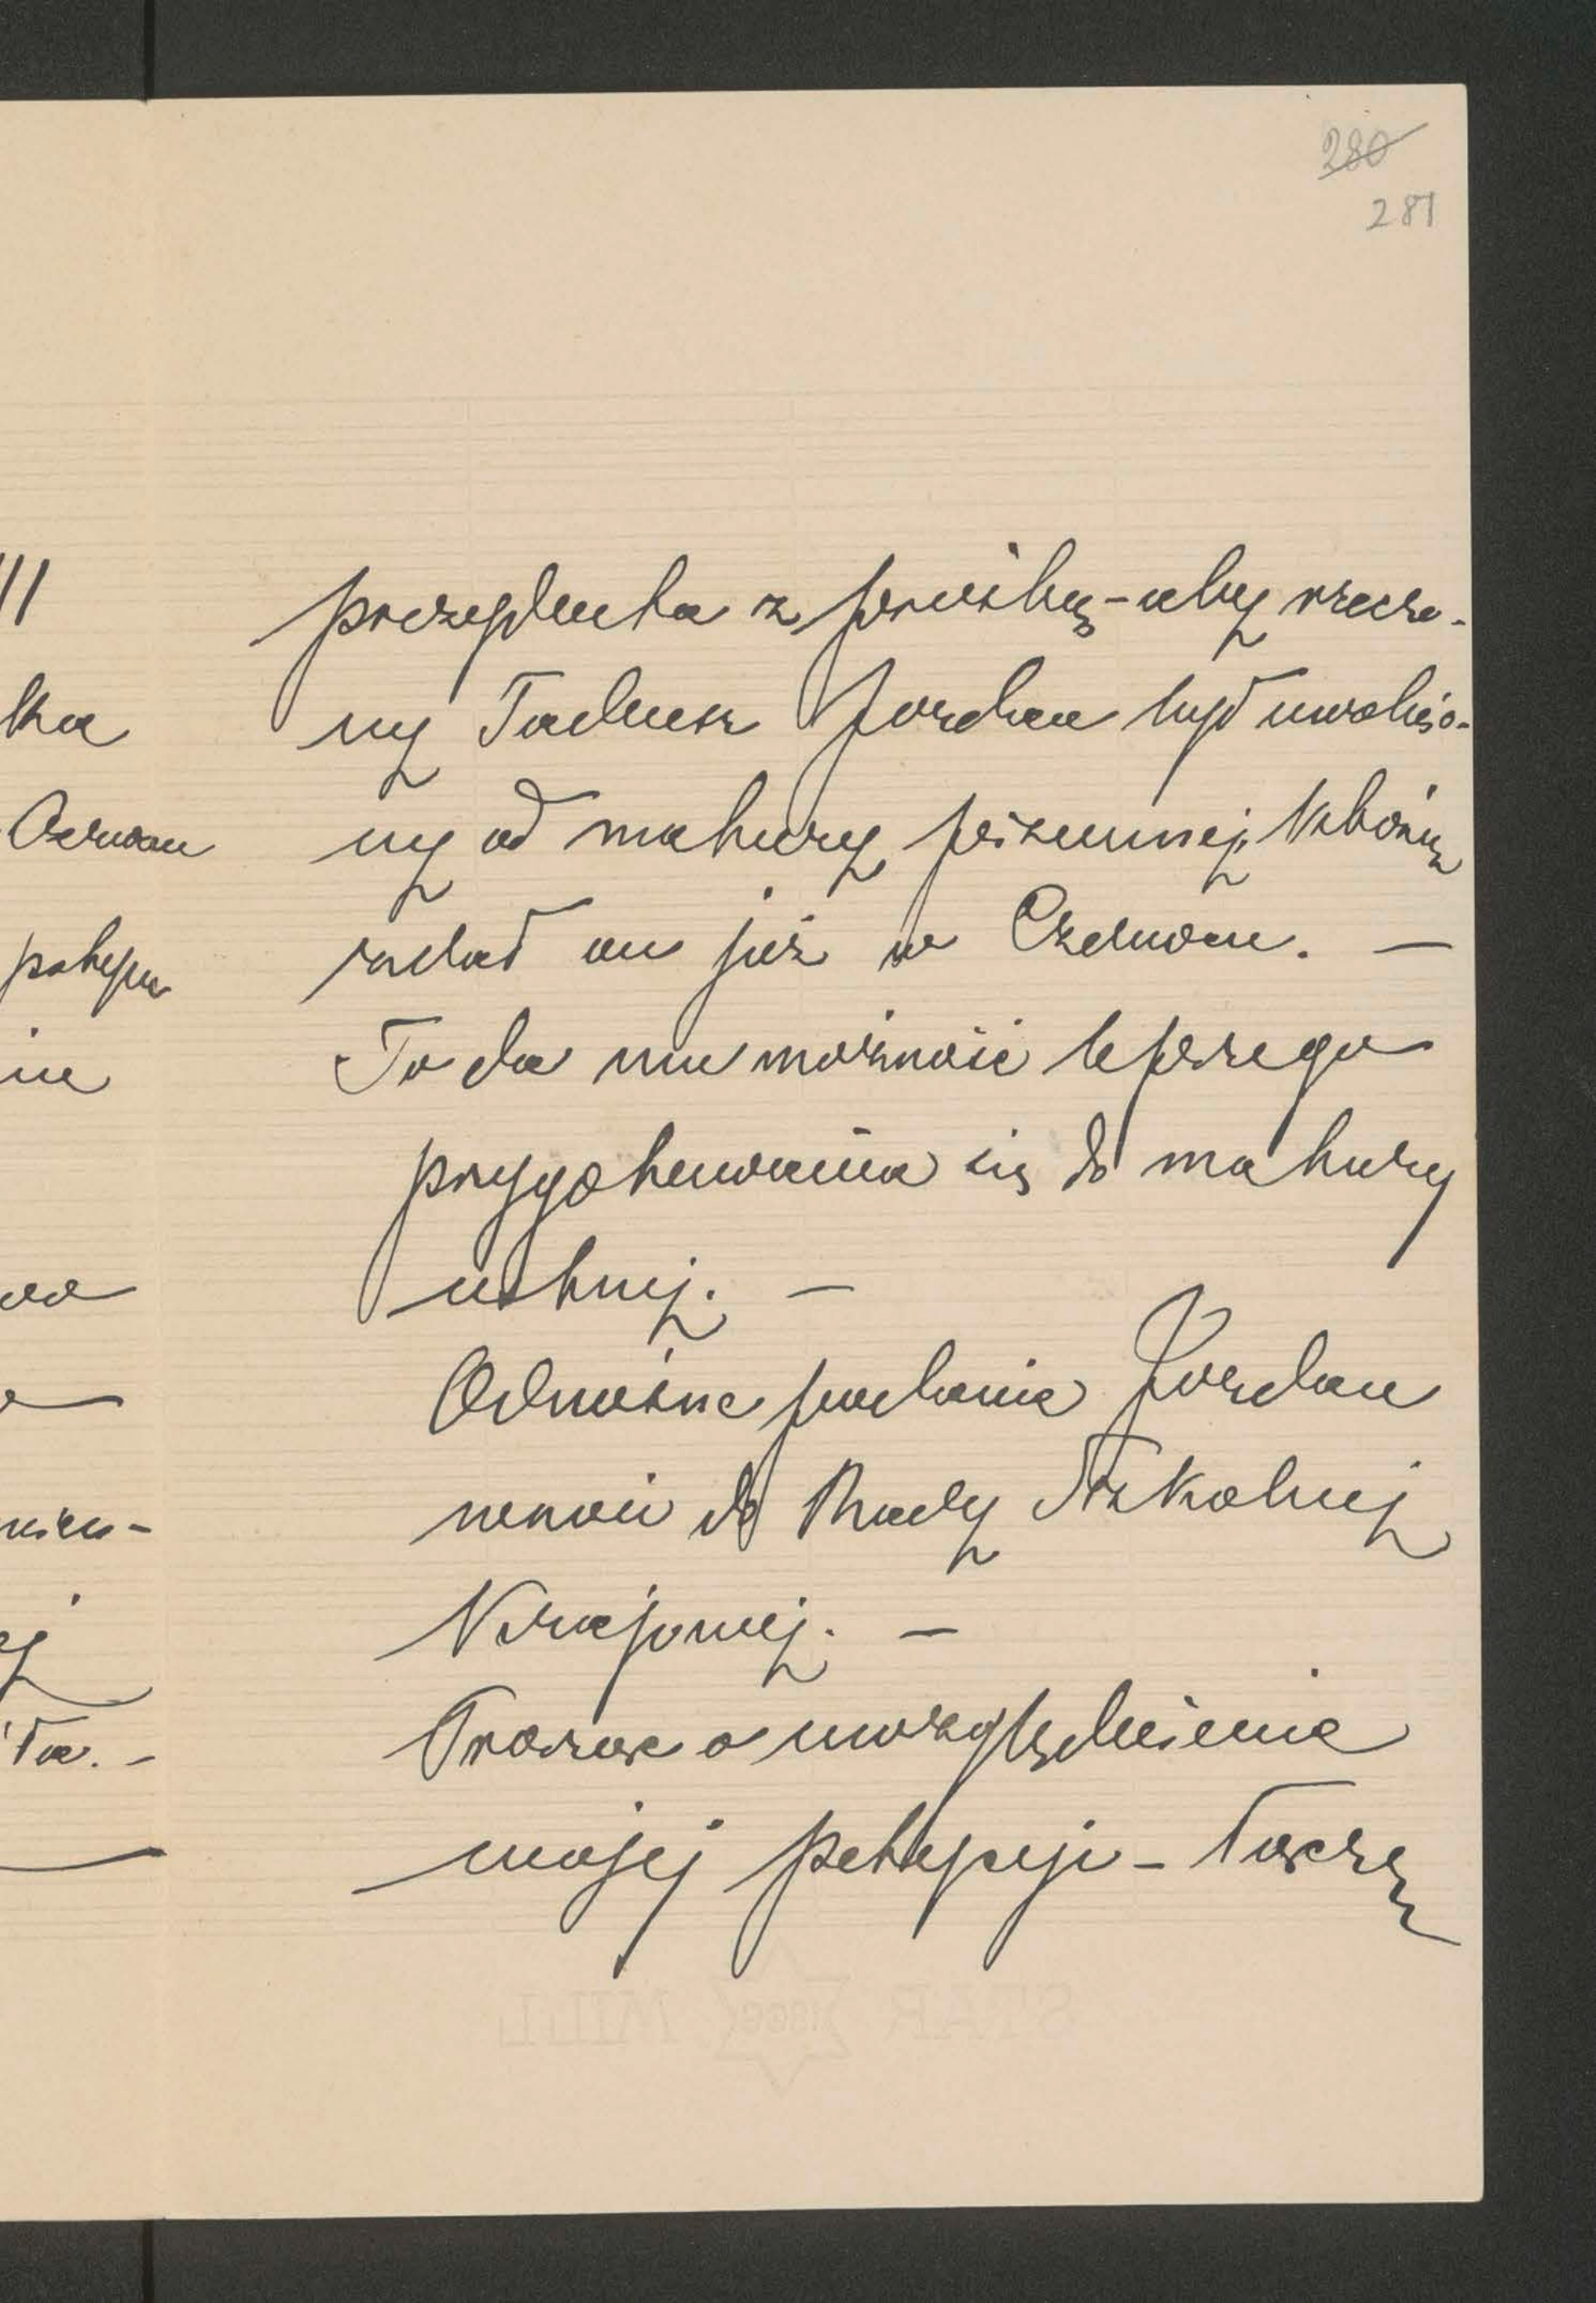 280
281
prezydenta z prośbą - aby rzeczo-
ny Tadeusz Jordan był uwolnio-
ny od matury pisemnej, którą
zdał on już w Czerwcu. —
To da mu możność lepszego
przygotowania się do matury
ustnej. —
Odnośne podanie Jordan
wnosi do Rady Szkolnej
Krajowej. —
Proszę o uwzględnienie
mojej petycyi - łączę
STAR MILL